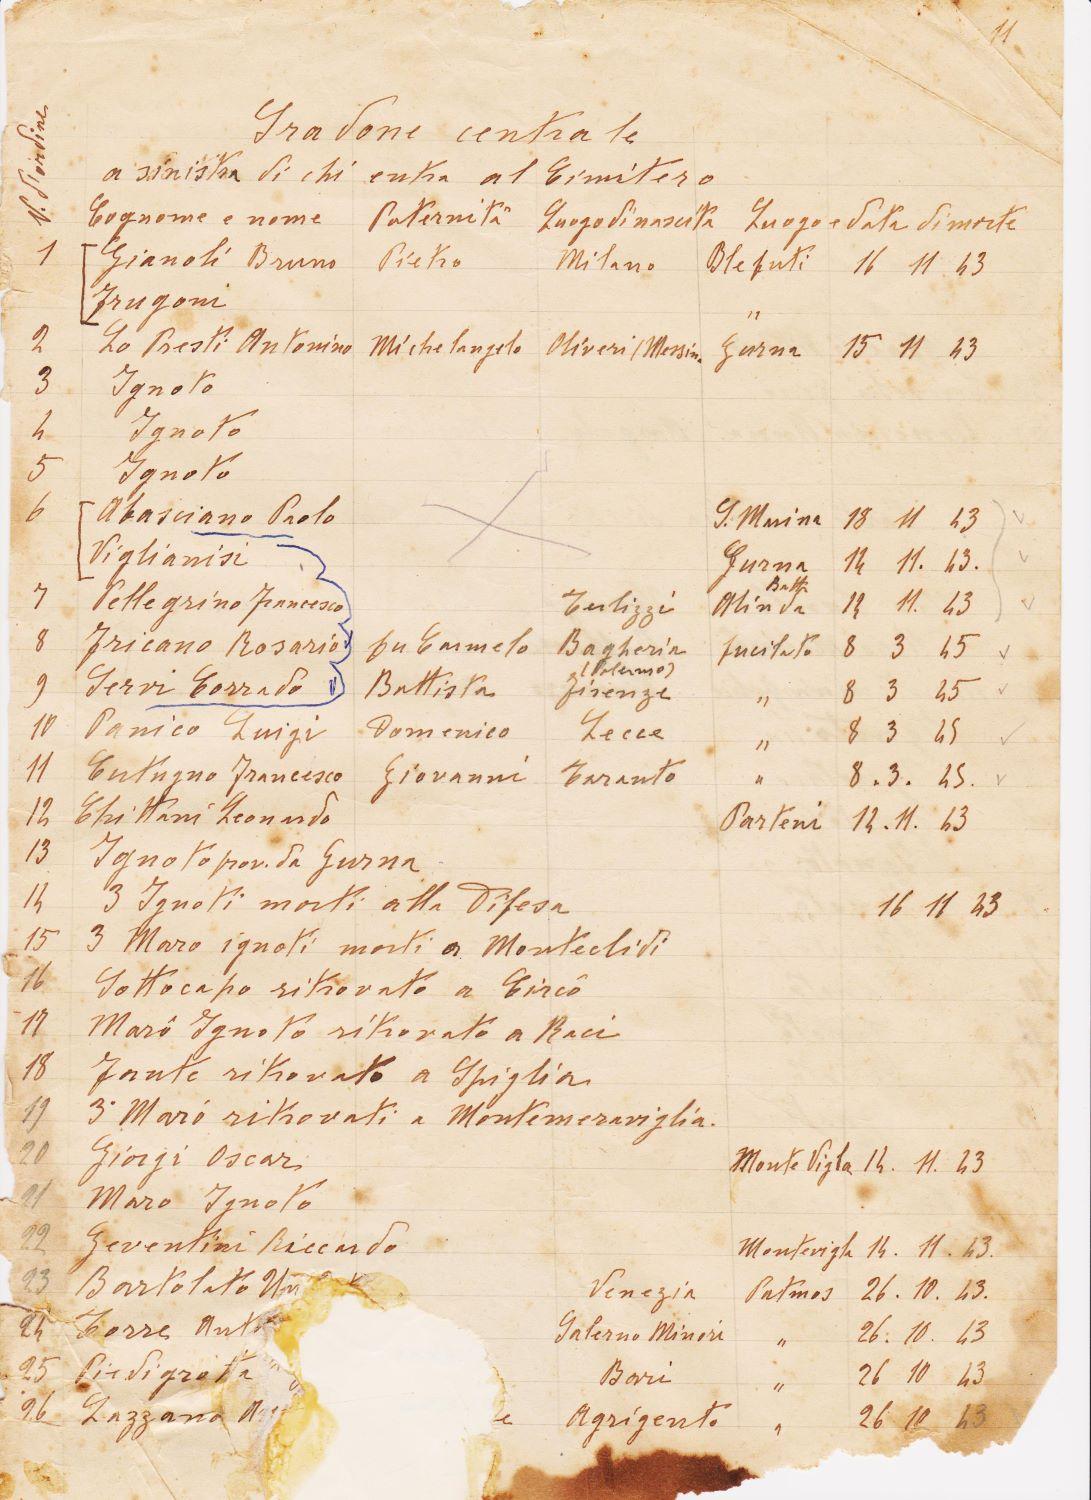 11
N. d'ordine
Gradone centrale
a sinistra di chi entra al Cimitero
Cognome e nome Paternità Luogo di nascita Luogo e data di morte
1 Gianoli Bruno Pietro Milano Blefuti 16 11 43
Frugoni "
2 Lo Presti Antonino Michelangelo Oliveri (Messina Gurna 15 11 43
3 Ignoto
4 Ignoto
5 Ignoto
6 Abasciano Paolo S. Marina 18 11 43
Viglianisi Gurna 14 11. 43.
7 Pellegrino Francesco Terlizzi Batt. Alinda 14 11. 43
8 Fricano Rosario fu Carmelo Bagheria fucilato 8 3 45
(Palermo)
9 Servi Corrado Battista Firenze " 8 3 45
10 Panico Luigi Domenico Lecce " 8 3 45
11 Cutugno Francesco Giovanni Taranto " 8.3. 45.
12 Chittani Leonardo Parteni 14.11. 43
13 Ignoto prov. da Gurna
14 3 Ignoti morti alla Difesa 16 11 43
15 3 Maro ignoti morti a Monteclidi
16 Sottocapo ritrovato a Circò
17 Marò Ignoto ritrovato a Raci
18 Fante ritrovato a Spiglia
19 3 Marò ritrovati a Montemeraviglia.
20 Giorgi Oscar Monte Vigla 14. 11. 43
21 Maro Ignoto
22 Geventini Riccardo Montevigla 14. 11. 43.
23 Bortolato Venezia Patmos 26. 10. 43.
24 Torre Ant Salerno Minori " 26. 10. 43
25 Piedigrotta Bari " 26 10 43
26 Lazzano e Agrigento " 26 10 43